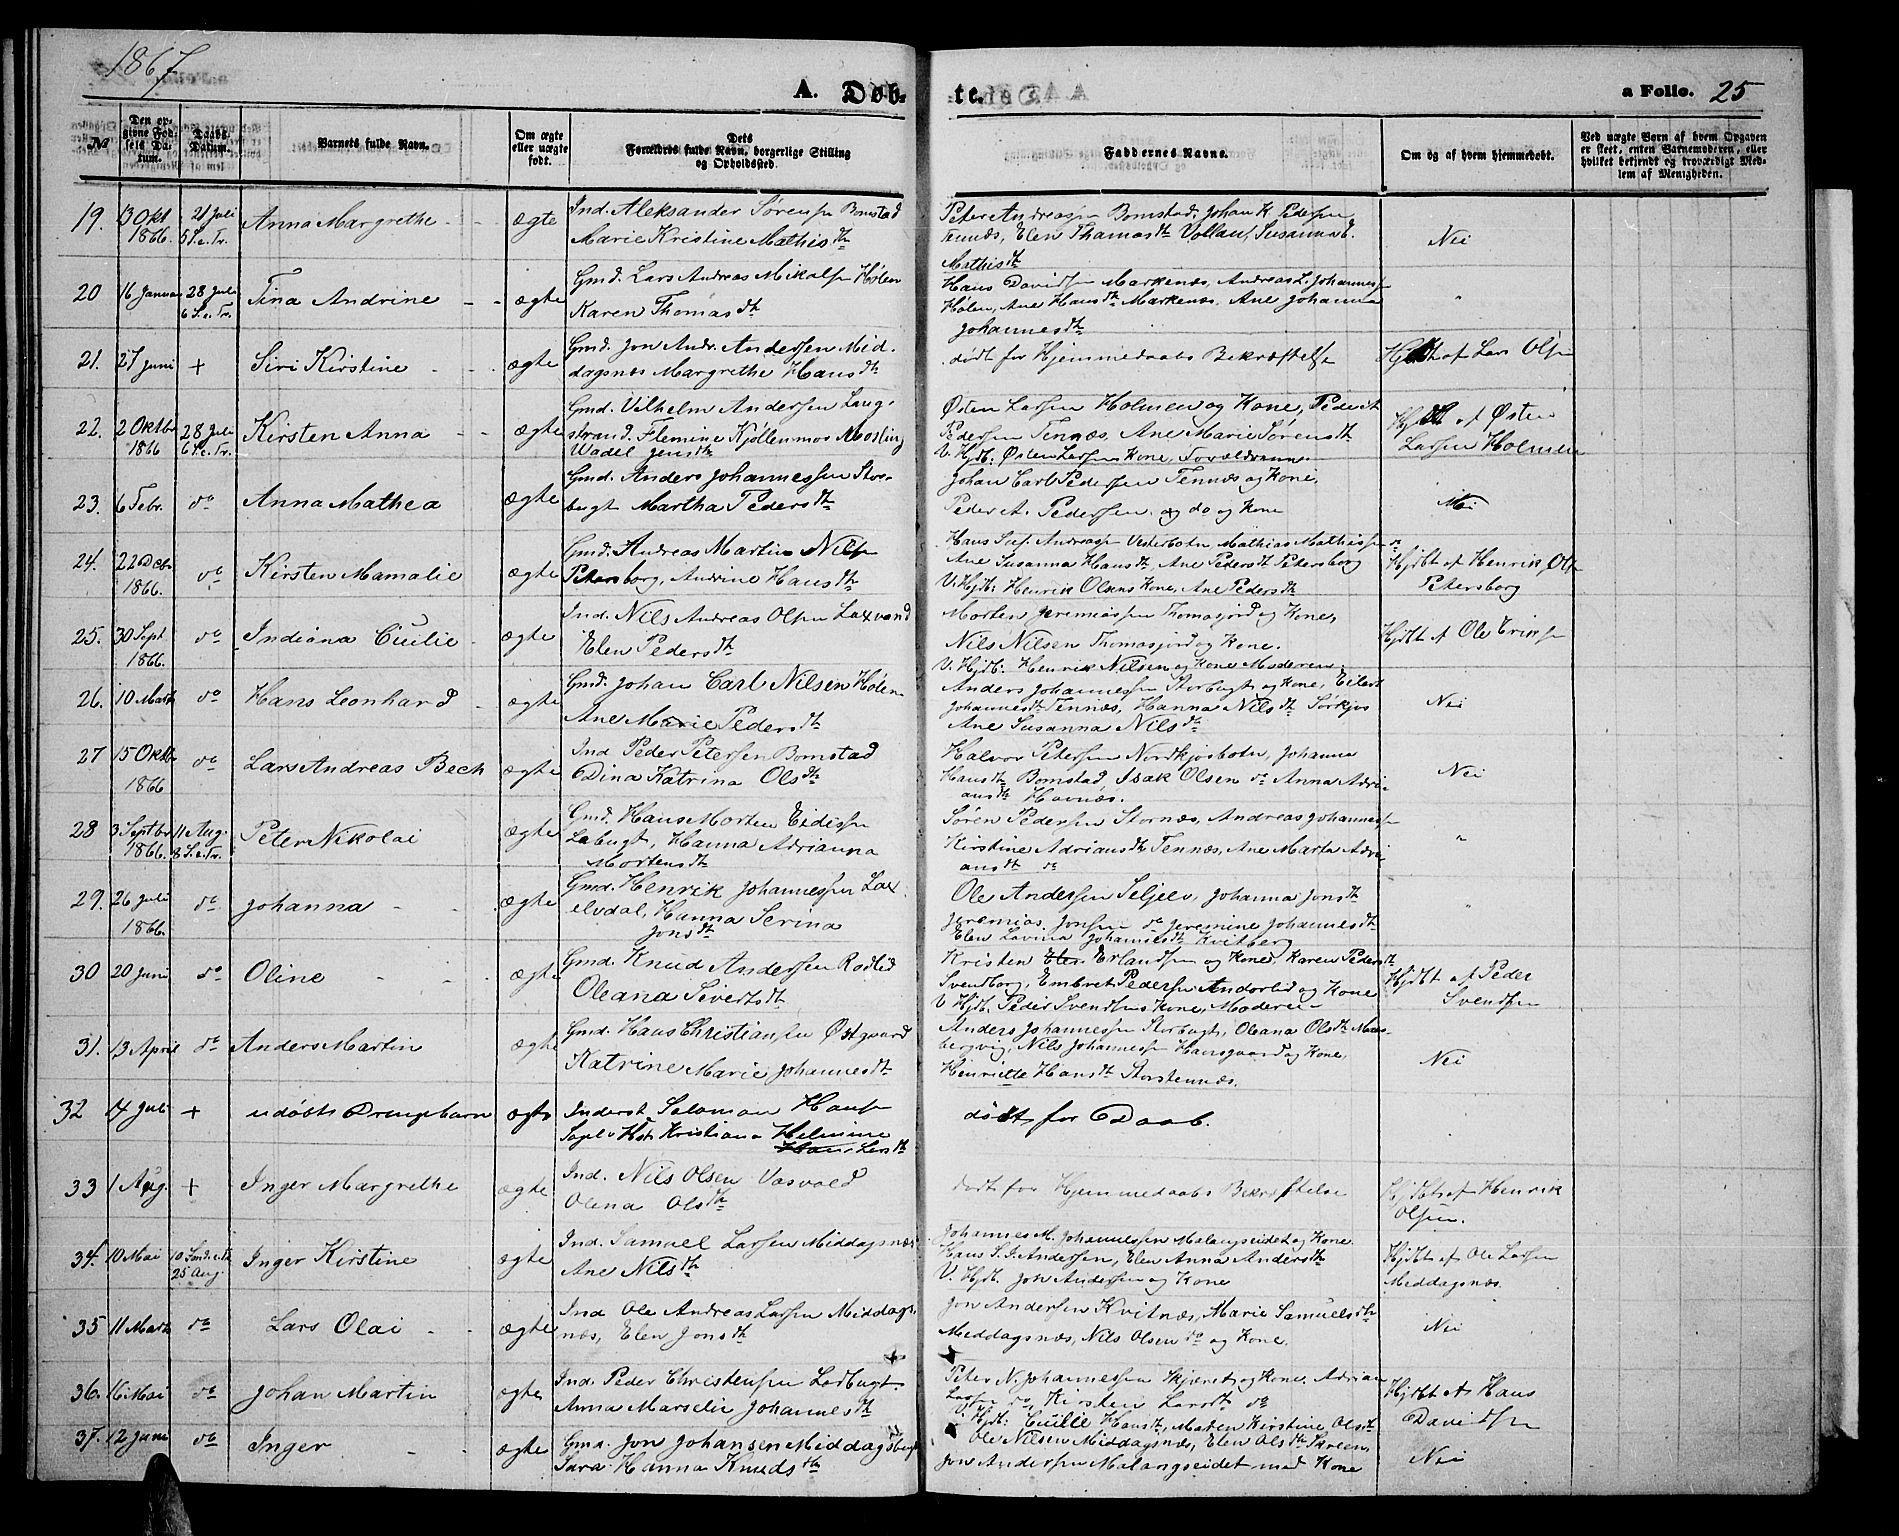 1867
A. Døb-
te.
a Folio. 25
No
Den op-
givne Fød-
sels Da-
tum.
Daabs-
Datum.
Barnets fulde Navn.
Om ægte
eller uægte
født.
Dets
Forældres fulde Navn, borgerlige Stilling
og Opholdssted.
Faddernes Navne.
Om og af hvem hjemmedøbt.
Ved uægte Børn af hvem Opgaven
er skeet, enten Barnemoderen, eller
hvilket bekjendt og troværdigt Med-
lem af Menigheden.
19. 13 Okt 1866. 21 Juli 5 S. e. Tr. Anna Margrethe ægte
Ind. Aleksander Sørensen Bomstad
Marie Kristine Mathisdtr
Peter Andreasen Bomstad, Johan K Pedersen
Tennæs, Elen Thomasdtr Vollan, Susanna E.
Mathisdtr
Nei
20 16 Januar 28 Juli 6 S. e. Tr. Tina Andrine ægte
Gmd. Lars Andreas Mikalsen Holen
Karen Thomasdtr
Hans Davidsen Markenæs, Andreas L. Johannessen
Holen, Ane Hansdtr Markenæs, Ane Johanna
Johannesdtr
"
21. 27 Juni + Siri Kirstine ægte
Gmd. Jon Andr. Andersen Mid-
dagsnæs Margrethe Hansdtr
dødt før Hjemmedaabs Bekræftelse
Hjdbt af Lars Olsen
22. 2 Oktbr 1866 28 Juli 6 S. e. Tr. Kirsten Anna ægte
Gmd. Vilhelm Andersen Lang-
strand. Flemine Kjøllenmos Mosling
Wadel Jensdtr
Østen Larsen Holmen og Kone, Peder
Pedersen Tennæs, Ane Marie Sørensdtr
V. Hjdb: Østen Larsens Kone, Forældrene
Hjdbt af Østen
Larsen Holmen
23. 6 Febr. do Anna Mathea ægte
Gmd. Anders Johannessen Stor-
bugt Martha Pedersdtr
Johan Carl Pedersen Tennæs og Kone,
Peder A. Pedersen og do og Kone
Nei
24. 22 Decbr 1866. do Kirsten Mamalie ægte
Gmd. Andreas Martin Nilsen
Petersborg, Andrine Hansdtr
Hans Andreasen Vesterbotn Mathias Mathissen do
Ane Susanna Hansdtr, Ane Pedersdtr Petersborg
V. Hjdb: Henrik Olsens Kone, Ane Pedersdtr
Hjdbt af Henrik Olsen
Petersborg
25. 30 Sept 1866. do Indiana Cecilie ægte
Ind. Nils Andreas Olsen Laxvand
Elen Pedersdtr
Morten Jeremiassen Thomasjord og Kone,
Nils Nilsen Thomasjord og Kone.
V. Hjdb: Henrik Nilsen og Kone Moderen
Hjdbt af Ole Eriksen
26. 10 Marts do Hans Leonhard ægte
Gmd. Johan Carl Nilsen Holen
Ane Marie Pedersdtr
Anders Johannessen Storbugt og Kone, Eilert
Johannesdtr Tennæs, Hanna Nilsdtr Sørkjos
Ane Susanna Nilsdtr
Nei
27 15 Oktbr 1866 do Lars Andreas Bech ægte
Ind Peder Petersen Bomstad
Dina Katrina Olsdtr
Halvor Petersen Nordkjosbotn, Johanna
Hansdtr Bomstad Isak Olsen do Anna Adri-
ansdtr Havnæs.
Nei
28 3 Septbr 1866. 11 Aug. 8 S. e. Tr. Peter Nikolai ægte
Gmd. Hans Morten Eidissen
Labugt, Hanna Adrianna
Mortensdtr
Søren Pedersen Stornæs, Andreas Johannessen
Kirstine Adriansdtr Tennæs, Ane Marta Adri-
ansdtr do
"
29. 26 Juli 1866. do Johanna ægte
Gmd. Henrik Johannessen Lax-
elvdal, Hanna Serina
Jonsdtr
Ole Andersen Seljelv, Johanna Jonsdtr
Jeremias Jonsen do Jeremine Johannesdtr
Elen Lovina Johannesdtr Kvitberg
"
30 20 Juni do Oline ægte
Gmd. Knud Andersen Rodlid
Oleana Sivertsdtr
Kristen Erlandsen og Kone, Karen Pedersdtr
Svendborg, Embret Pedersen Andorlid og Kone
V. Hjdb. Peder Svendsens Kone, Moderen
Hjdbt af Peder
Svendsen
31. 13 April do Anders Martin ægte
Gmd. Hans Christiansen Østgaard
Katrine Marie Johannesdtr
Anders Johannessen Storbugt, Oleana Olsdtr Mors-
bergvig, Nils Johannessen Hansgaard og Kone,
Henriette Hansdtr Storstennæs.
Nei
32 14 Juli + udøbt Drengebarn ægte
Inderst Salomon Hansen
Kristiana Helmine
Larsdtr
dødt før Daab.
33 1 Aug. + Inger Margrethe ægte
Ind. Nils Olsen Vasvold
Olena Olsdtr
dødt før Hjemmedaabs Bekræftelse
Hjdbt af Henrik
Olsen.
34. 10 Mai 10 Sønd. e. Tr. 25 Aug. Inger Kirstine ægte
Ind. Samuel Larsen Middagsnæs
Ane Nilsdtr
Johannes M. Johannessen Malangseidet og Kone
Hans S. J. Andersen, Elen Anna Andersdtr
V. Hjdb. Jon Andersen og Kone
Hjdbt af Ole Larsen
Middagsnæs.
35 11 Marts do Lars Olai ægte
Ind Ole Andreas Larsen Middags-
næs, Elen Jonsdtr
Jon Andersen Kvitnæs, Marie Samuelsdtr
Middagsnæs, Nils Olsen do og Kone.
Nei
36. 16 Mai do Johan Martin ægte
Ind. Peder Christensen Lodbugt
Anna Marselie Johannesdtr
Peter N. Johannessen Skjæret og Kone, Adrian
Larsen do, Kirsten Larsdtr do
V. Hjdb: Cecilie Hansdtr, Maren Kirstine Olsdtr
Hjdbt af Hans
Davidsen
37. 12 Juni do Inger ægte
Gmd. Jon Johansen Middagsbugt
Sara Hanna Knudsdtr
Ole Nilsen Middagsnæs, Elen Olsdtr
Jon Andersen Malangseidet med Kone
Nei